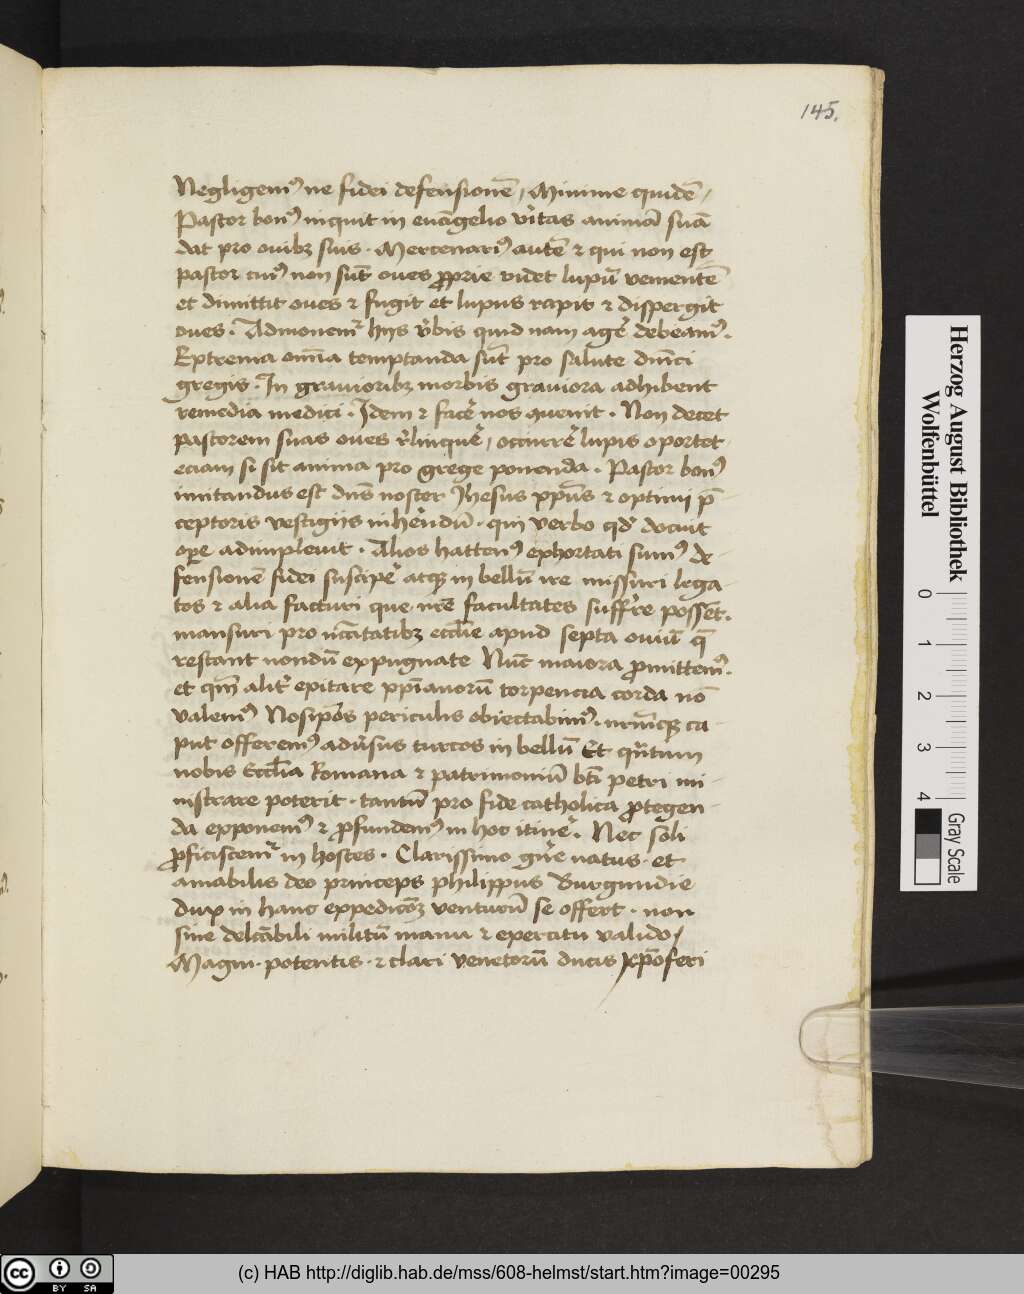 145.
Negligemꝰ ne fidei defensionē, Minime quidē,
Pastor bonꝰ inquit in euāgelio v̓itas animā suā
dat pro ouibꝫ suis . Mercenariꝰ autē ⁊ qui non est
pastor cuiꝰ non sūt oues ꝓprie videt lupū venientē
et dimittit oues ⁊ fugit et lupus rapit ⁊ dispergit
oues . Admonemr̉ hijs v̓bis quid nam ag̓e debeamꝰ.
Extrema om̄ia temptanda sūt pro salute dn̄ici
gregis . In grauioribꝫ morbis grauiora adhibent
remedia medici . Idem ⁊ fac̓e nos quenit . Non decet
pastorem suas oues r̓linqu̓e, occurr̓e lupis oportet
eciam si sit anima pro grege ponenda . Pastor bonꝰ
imitandus est dn̄s noster Jhesus xp̄us ⁊ optimi p̄
ceptoris vestigijs inhe̓ndū . qui verbo qd̓ docuit
oꝑe adimpleuit . Alios hactenꝰ exhortati sumꝰ de
fensionē fidei suscip̓e atqꝫ in bellū ire missuri lega
tos ⁊ alia facturi que nr̄e facultates suffr̓re possēt.
mansuri pro nc̄itatibꝫ eccl̄ie apud septa ouiū q̄
restant nondū expugnate Nūc maiora ꝓmittemꝰ.
et qm̄ alit̓ exitare xp̄ianorū torpencia corda nō
valemꝰ Nosip̄os periculis obiectabimꝰ . nr̄mqꝫ ca
put offeremꝰ adu̓sus turcos in bellū Et qn̄tum
nobis Eccl̄ia Romana ⁊ patrimoniū bt̄i petri mi
nistrare poterit . tantū pro fide catholica ꝓtegen
da exponemꝰ ⁊ ꝓfundemꝰ in hoc itin̓e . Nec soli
ꝓficiscemr̉ in hostes . Clarissimo gn̄e natus . et
amabilis deo princeps philippus Burgundie
dux in hanc expedicōꝫ venturū se offert . non
sine delcābili militū manu ⁊ exercitu valido /
Magni . potentis . ⁊ clari venetorū ducis xp̄oferi
Herzog August Bibliothek
Wolfenbüttel
0 1 2 3 4
Gray Scale
BY SA
(c) HAB http://diglib.hab.de/mss/608-helmst/start.htm?image=00295